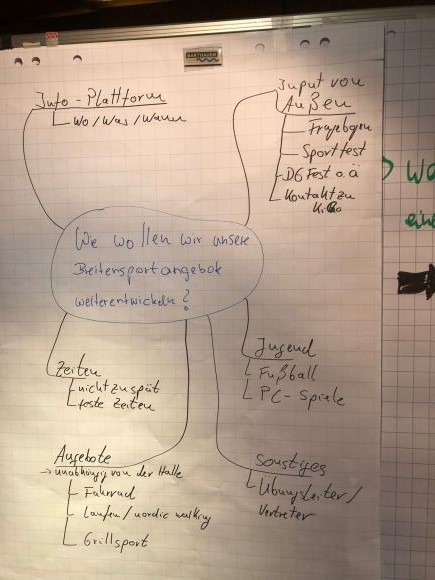 BARTHAUER
Info-Plattform
Wo/Was/Wann
Input von
Außen
Fragebogen
Sportfest
DG Fest o.ä
Kontakt zu
Wie wollen wir unsere
Breitensportangebot
weiterentwickeln?
Zeiten
nicht zu spät
feste Zeiten
Jugend
Fußball
PC-Spiele
Angebote
→ unabhängig von der Halle
Fahrrad
Laufen/nordic walking
Grillsport
Sonstiges
Übungsleiter/
Vertreter